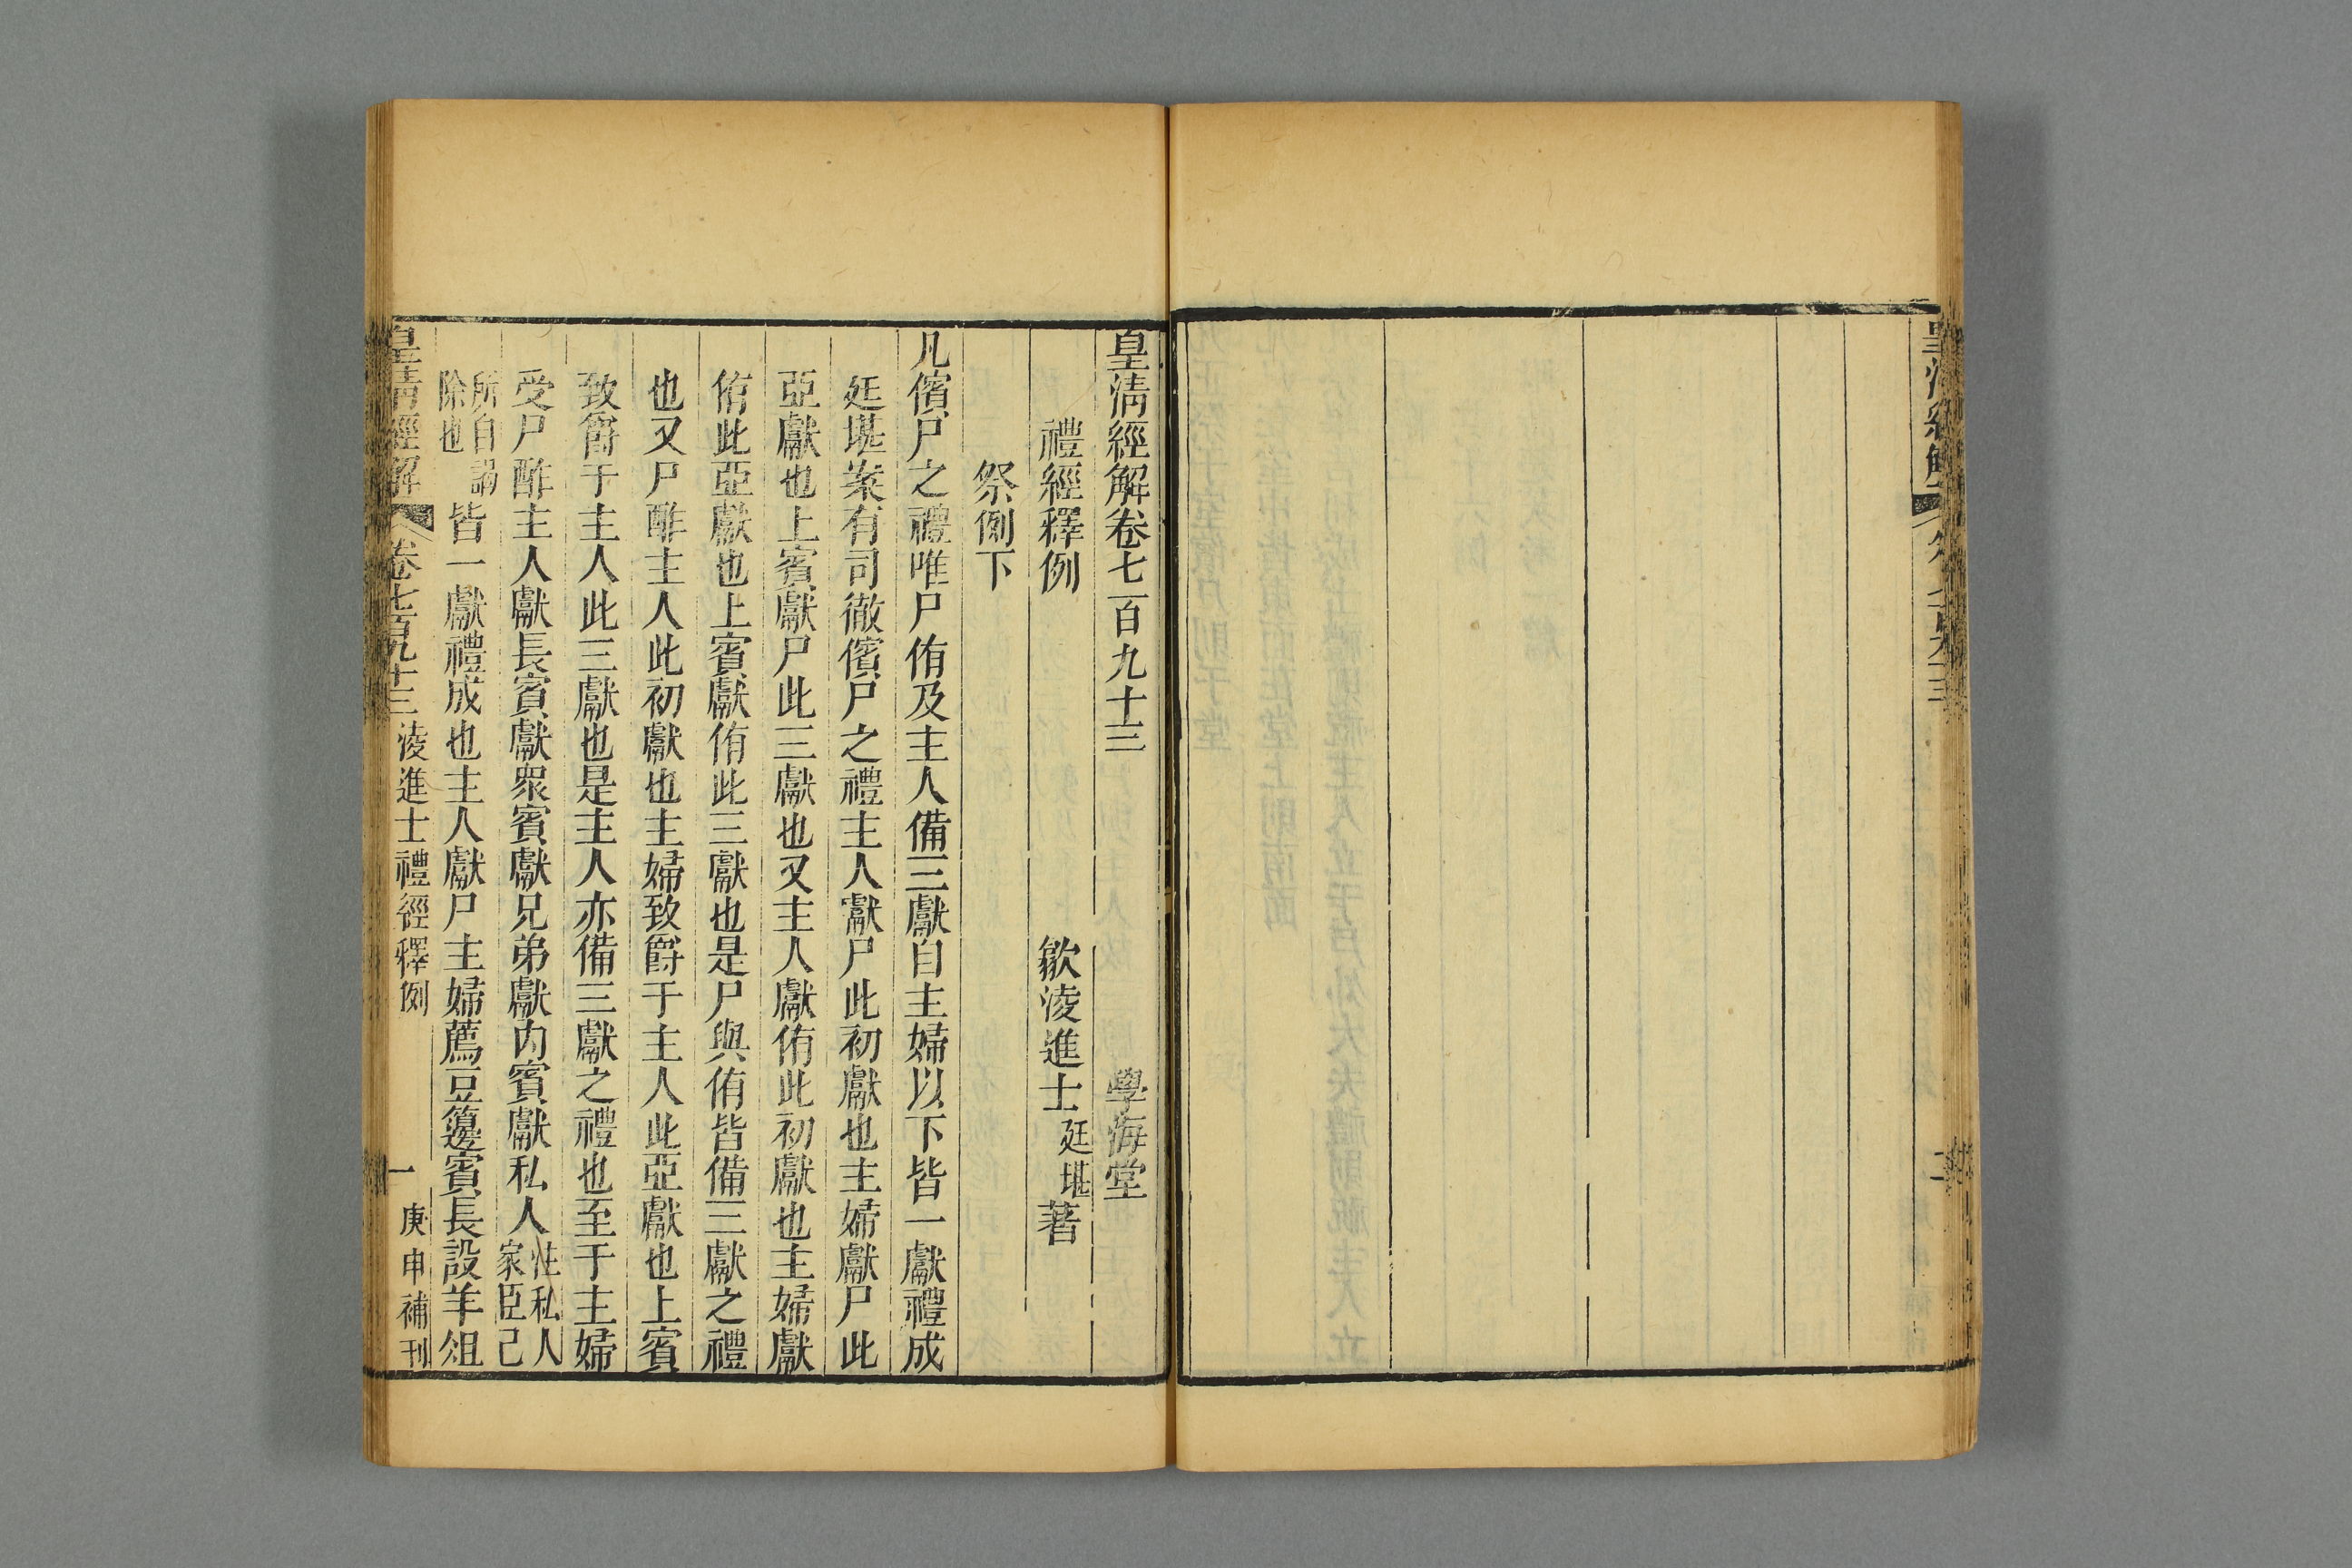 皇清經解卷七百九十三 學海堂
禮經釋例 歙淩進士廷堪著
祭例下
凡儐尸之禮唯尸侑及主人備三獻自主婦以下皆一獻禮成
廷堪案有司徹儐尸之禮主人獻尸此初獻也主婦獻尸此
亞獻也上賓獻尸此三獻也又主人獻侑此初獻也主婦獻
侑此亞獻也上賓獻侑此三獻也是尸與侑皆備三獻之禮
也又尸酢主人此初獻也主婦致爵于主人此亞獻也上賓
致爵于主人此三獻也是主人亦備三獻之禮也至于主婦
受尸酢主人獻長賓獻眾賓獻兄弟獻內賓獻私人注私人
家臣己
所自謁
除也皆一獻禮成也主人獻尸主婦薦豆籩賓長設羊俎
皇清經解 卷七百九十三 淩進士禮經釋例 一 庚申補刊